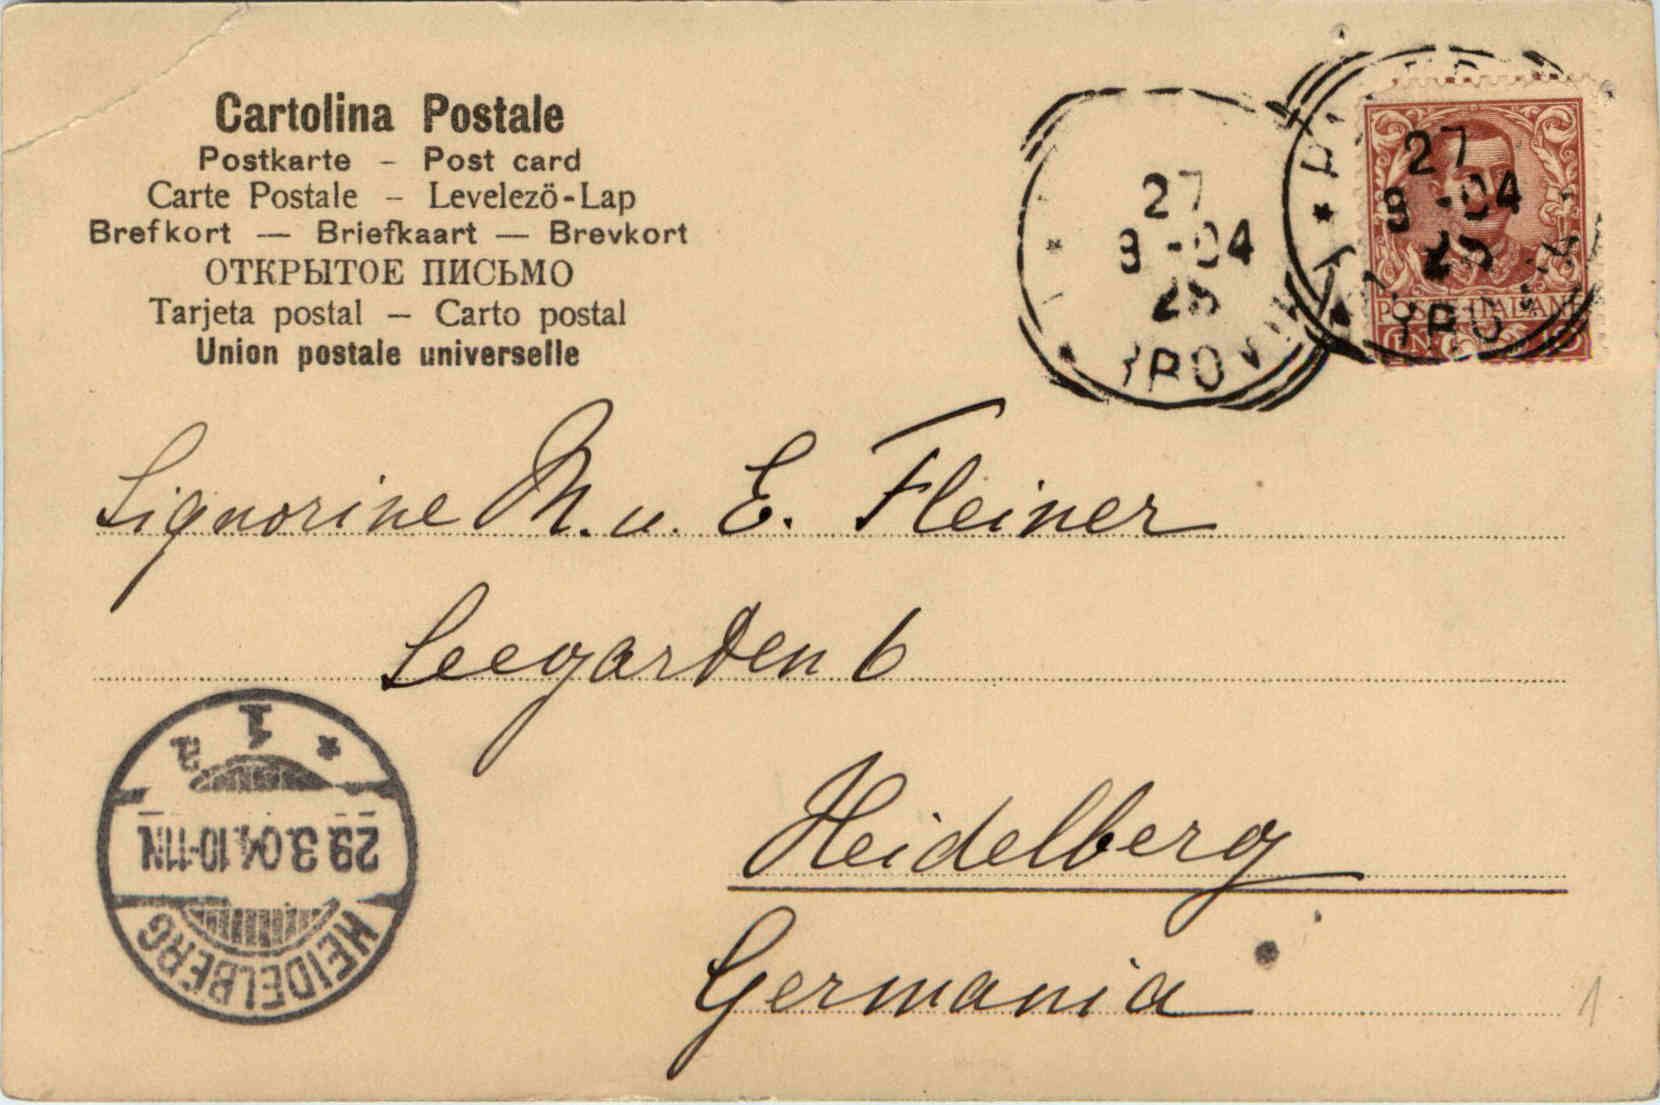 Cartolina Postale
Postkarte – Post card
Carte Postale – Levelezö-Lap
Brefkort — Briefkaart — Brevkort
ОТКРЫТОЕ ПИСЬМО
Tarjeta postal — Carto postal
Union postale universelle
27
3-04
POSTE ITALIANE
27
3-04
Signorine M. u. E. Fleiner
Seegarden 6
Heidelberg
Germania
HEIDELBERG
29.3.04.10-11N
* 1 a
1